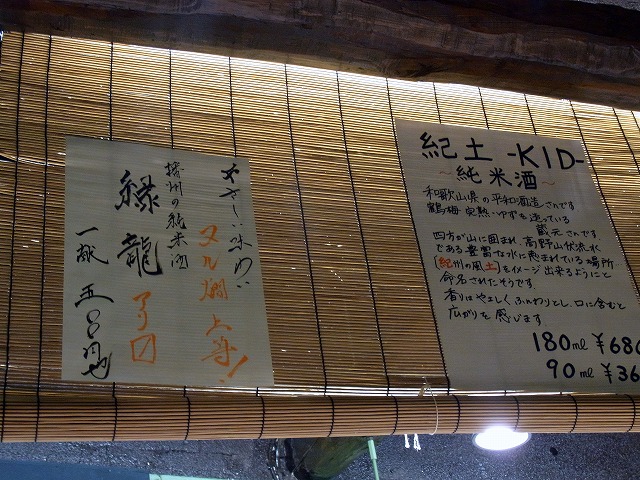 やさしい味わい
ヌル燗上等!
播州の純米酒
緑龍
アリ〼
一献 五〇〇円也
紀土 -KID-
～純米酒～
和歌山県の平和酒造さんです
鶴梅 完熟・ゆずを造っている
蔵元さんです
四方が山に囲まれ、高野山伏流水
である豊富な水に恵まれている場所
(紀州の風土)をイメージ出来るようにと
命名されたそうです.
香りはやさしく、ふんわりとし、口に含むと
広がりを感じます.
180ml ¥680
90ml ¥36